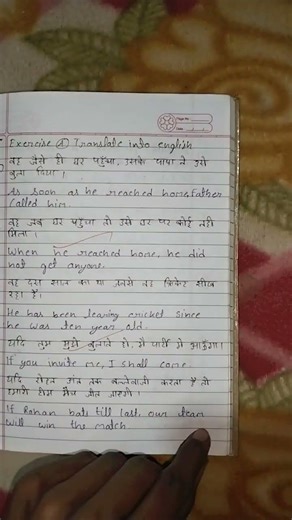 Page No.
Date
Exercise ① Translate into english
वह जैसे ही घर पहुँचा, उसके पापा ने उसे
बुला लिया।
As soon as he reached home, father
called him.
वह जब घर पहुँचा तो उसे घर पर कोई नही
मिला।
When he reached home, he did
not get anyone.
वह दस साल का था जबसे वह क्रिकेट सीख
रहा है।
He has been leaving cricket since
he was ten year old.
यदि तुम मुझे बुलाते हो, मै पार्टी में आऊँगा।
If you invite me, I shall come.
यदि रोहन अंत तक बल्लेबाजी करता है तो
हमारी टीम मैच जीत जाएगी।
If Rohan bats till last, our team
will win the match.